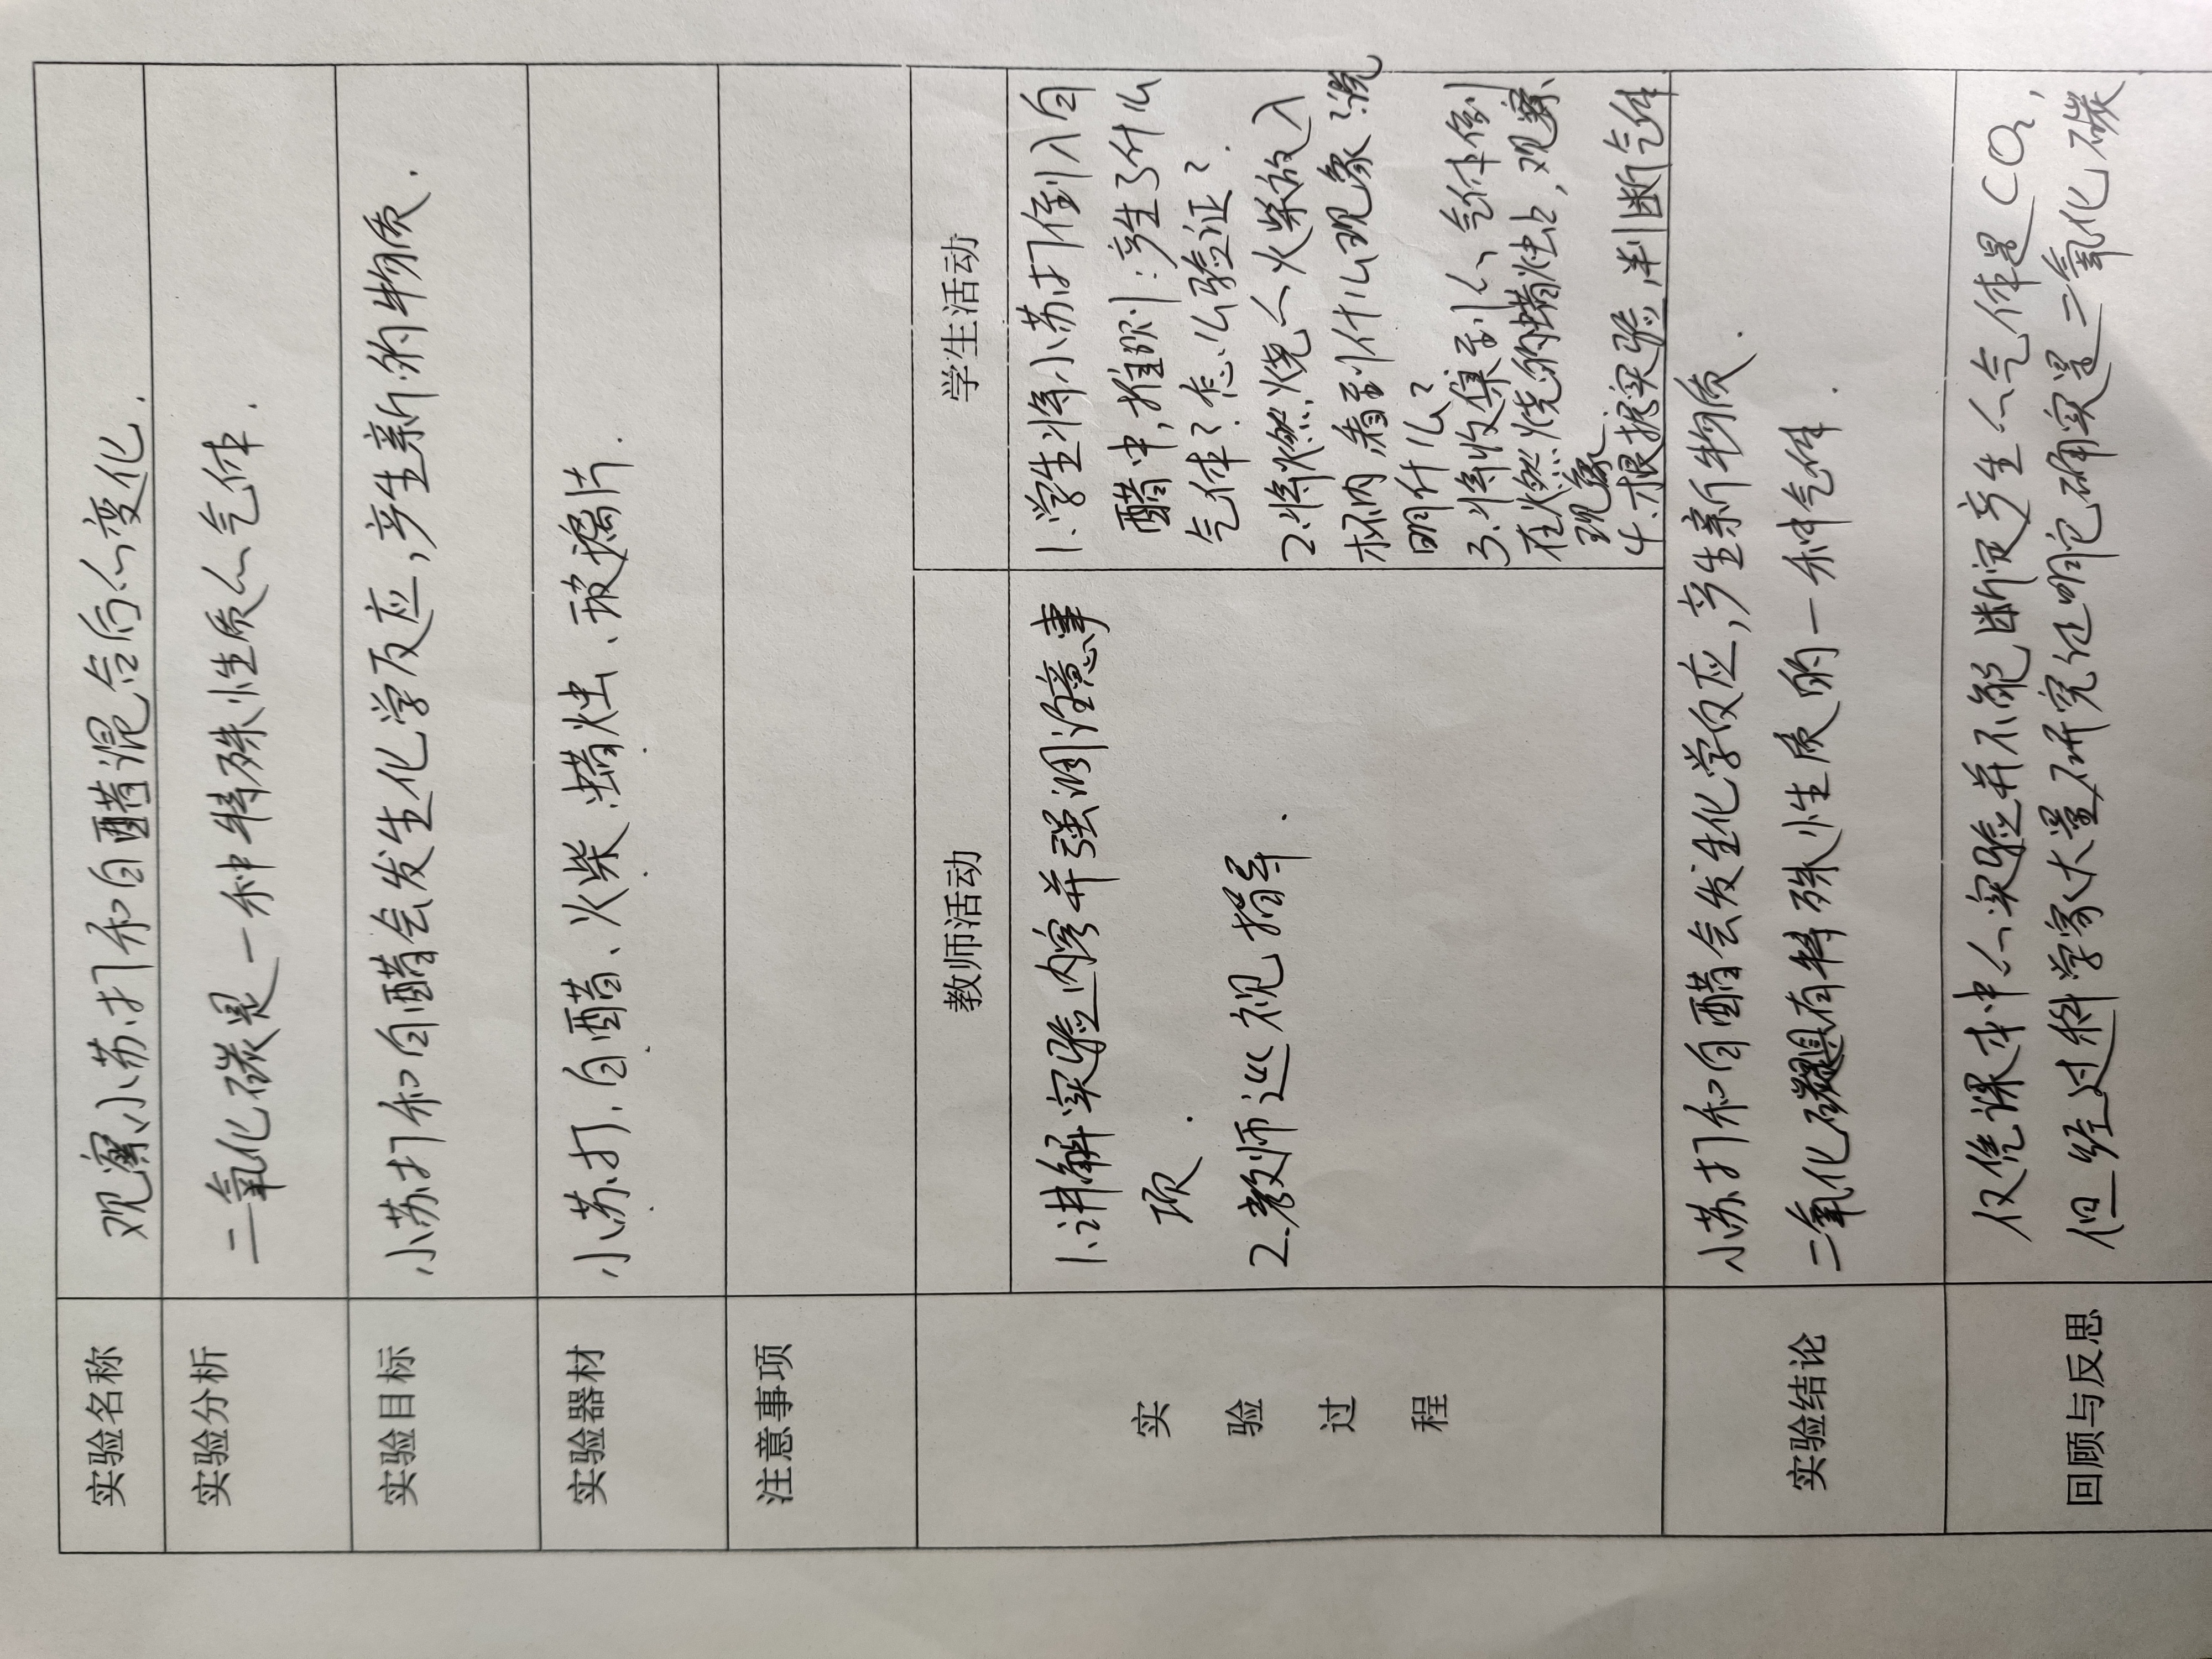 实验名称
观察小苏打和白醋混合后的变化.
实验分析
二氧化碳是一种特殊性质的气体.
实验目标
小苏打和白醋会发生化学反应,产生新的物质.
实验器材
小苏打、白醋、火柴、蜡烛、玻璃片.
注意事项
实验过程
教师活动
1.讲解实验内容并强调注意事
项.
2.教师巡视指导.
学生活动
1.学生将小苏打倒入白
醋中,推测:产生了什么
气体?怎么验证?
2.将燃烧的火柴放入
杯内看到什么现象?说
明什么?
3.将收集到的气体倒
在燃烧的蜡烛上,观察
现象
4.根据实验,判断气体
实验结论
小苏打和白醋会发生化学反应,产生新物质.
二氧化碳具有特殊性质的一种气体.
回顾与反思
仅凭课本中的实验并不能断定产生的气体是CO₂,
但经过科学家大量研究证明它确实是二氧化碳